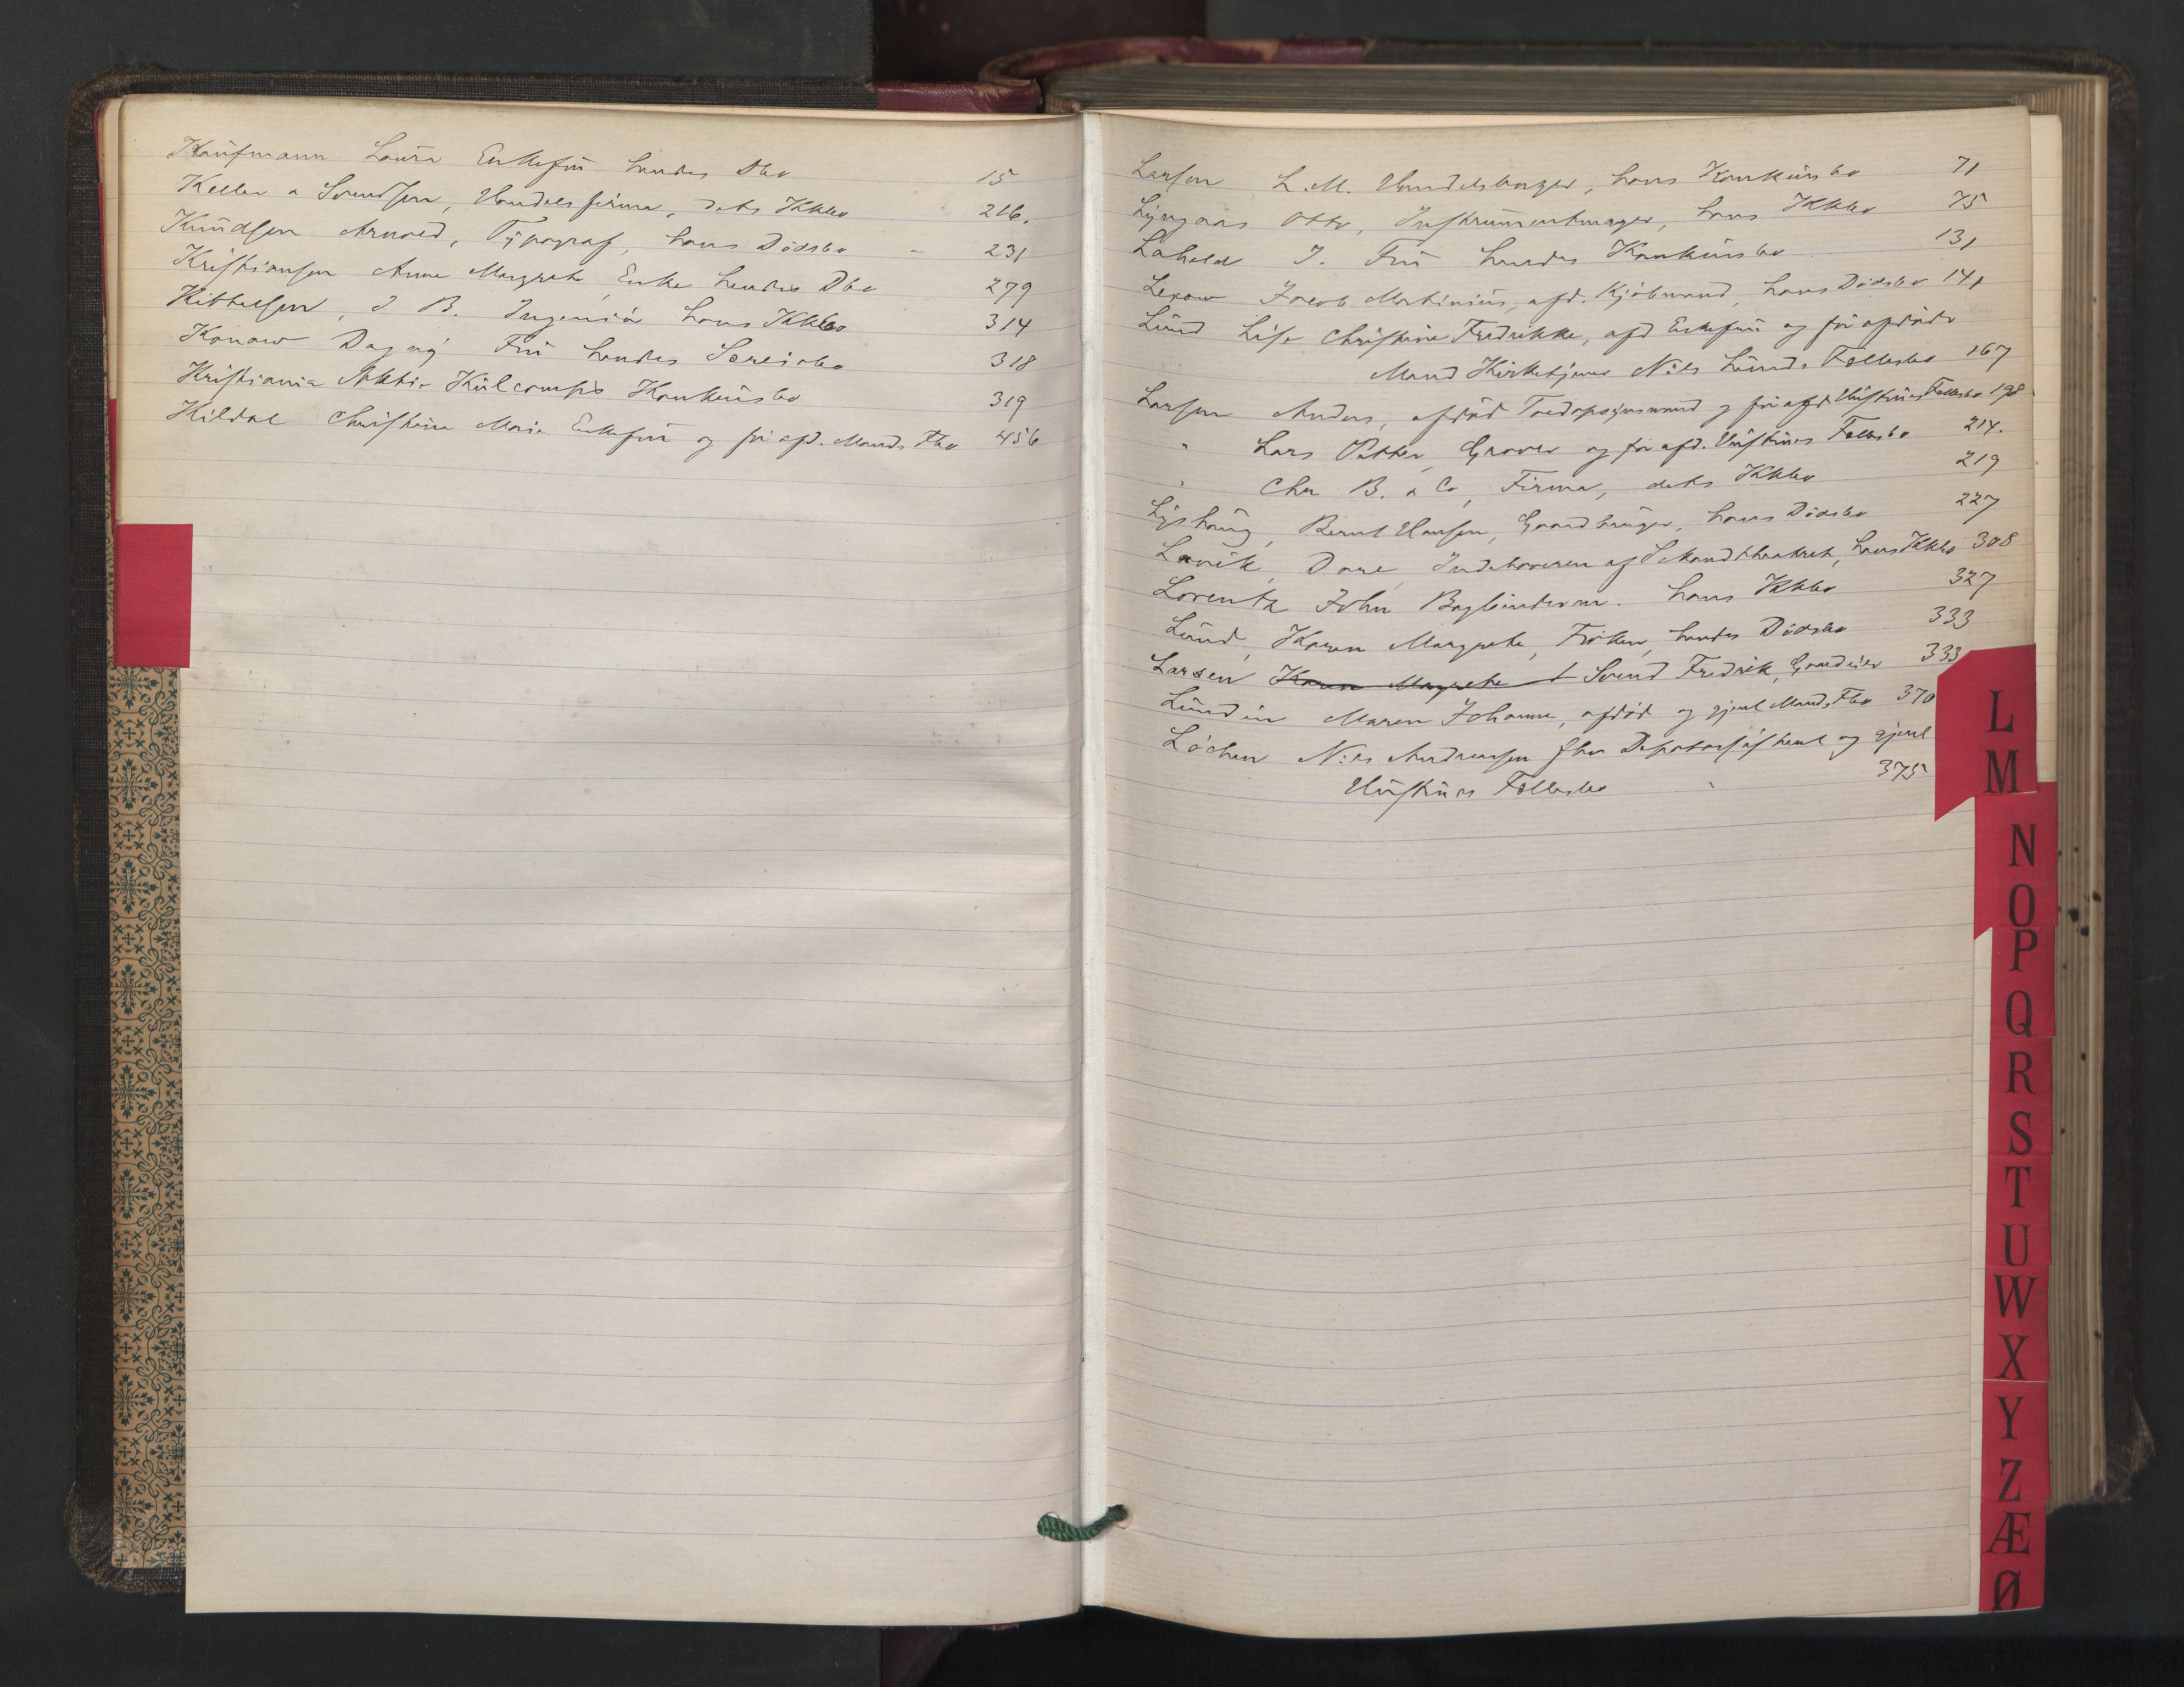 Kaufmann Laura Enkefru hendes Dbo 15
Keller & Svendsen, Handelsfirma, dets Kkbo 216.
Knudsen Arnold, Typograf, hans Dødsbo - 231
Kristiansen Anne Margrethe Enke hendes Dbo 279
Kittelsen, I B. Ingeniør hans Kkbo 314
Konow Dagny Fru hendes Særeiebo 318
Kristiania Aktie Kulcomp's Konkursbo 319
Kildal Christine Marie Enkefru og før afd. Mands Fbo 456
Larsen L. M. Handelsborger, hans Konkursbo 71
Lyngaas Otto, Instrumentmager, hans Kkbo 75
Lahold J. Fru hendes Konkursbo 131
Lexow Jacob Martinius, afd. Kjøbmand, hans Dødsbo 141
Lund Lise Christine Fredrikke, afd Enkefru og før afdøde
Mand Kirketjener Nils Lunds Fællesbo 167
Larsen Anders, afdød Toldopsynsmand og før afd Hustrues Fællesbo 198
" Lars Petter, Graver og før afd. Hustrues Fællesbo 214.
" Chr B. & Co, Firma, dets Kkbo 219
Lyshaug, Bernt Hansen, Gaardbruger, hans Dødsbo 227
Lavik, Dore, Indehaveren af Sekondtheatret, hans Kkbo 308
Lorentz John Bogbinderm. hans Kkbo 327
Lund, Karen Margrethe, Frøken, hendes Dødsbo 333
Larsen Karen Margrethe Svend Fredrik, Gaardeier 333
Lundin Maren Johanne, afdød og gjenl Mands Fbo 370
Løchen Nils Andreassen fhv Depotassistent og gjenl
Hustrues Fællesbo 375
L
M
N
O
P
Q
R
S
T
U
W
X
Y
Z
Æ
Ø